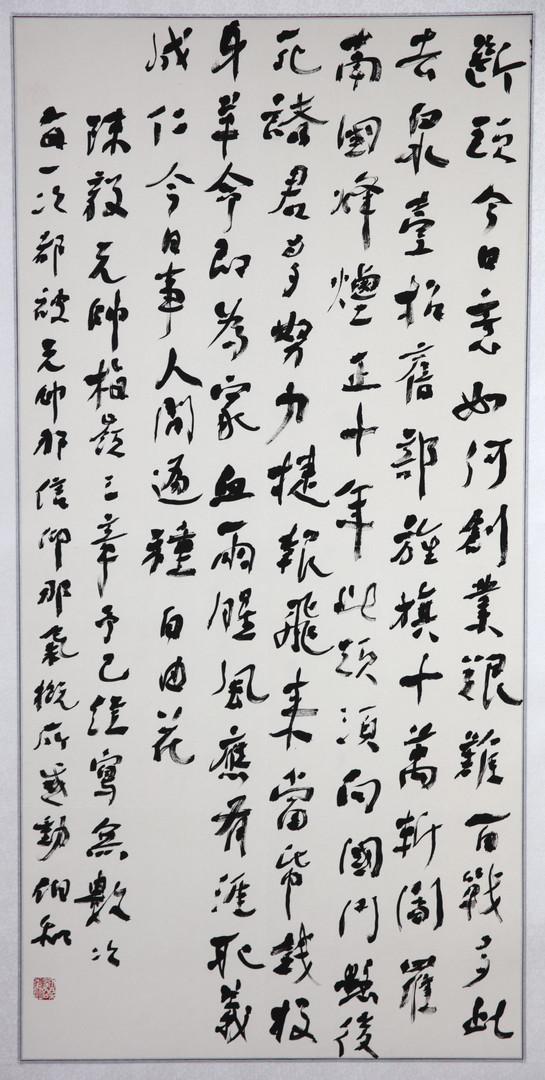 斷頭今日意如何創業艱難百戰多此
去泉臺招舊部旌旗十萬斬閻羅
南國烽煙正十年此頭須向國門懸後
死諸君多努力捷報飛來當紙錢投
身革命即為家血雨腥風應有涯取義
成仁今日事人間遍種自由花
陳毅元帥梅嶺三章予已經寫無數次
每一次都被元帥那信仰那氣概所感動